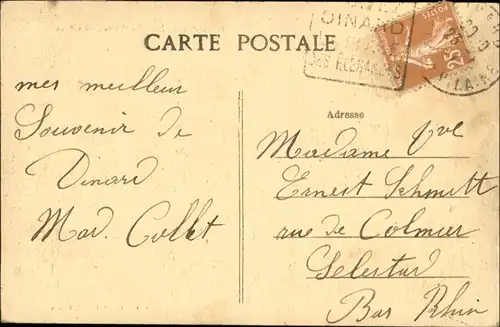 DINARD
CARTE POSTALE
SES
POSTES
25c
mes meilleur
Souvenir de
Dinard
Mad. Collet
Adresse
Madame Vve
Ernest Schmitt
rue de Colmar
Selestad
Bas Rhin